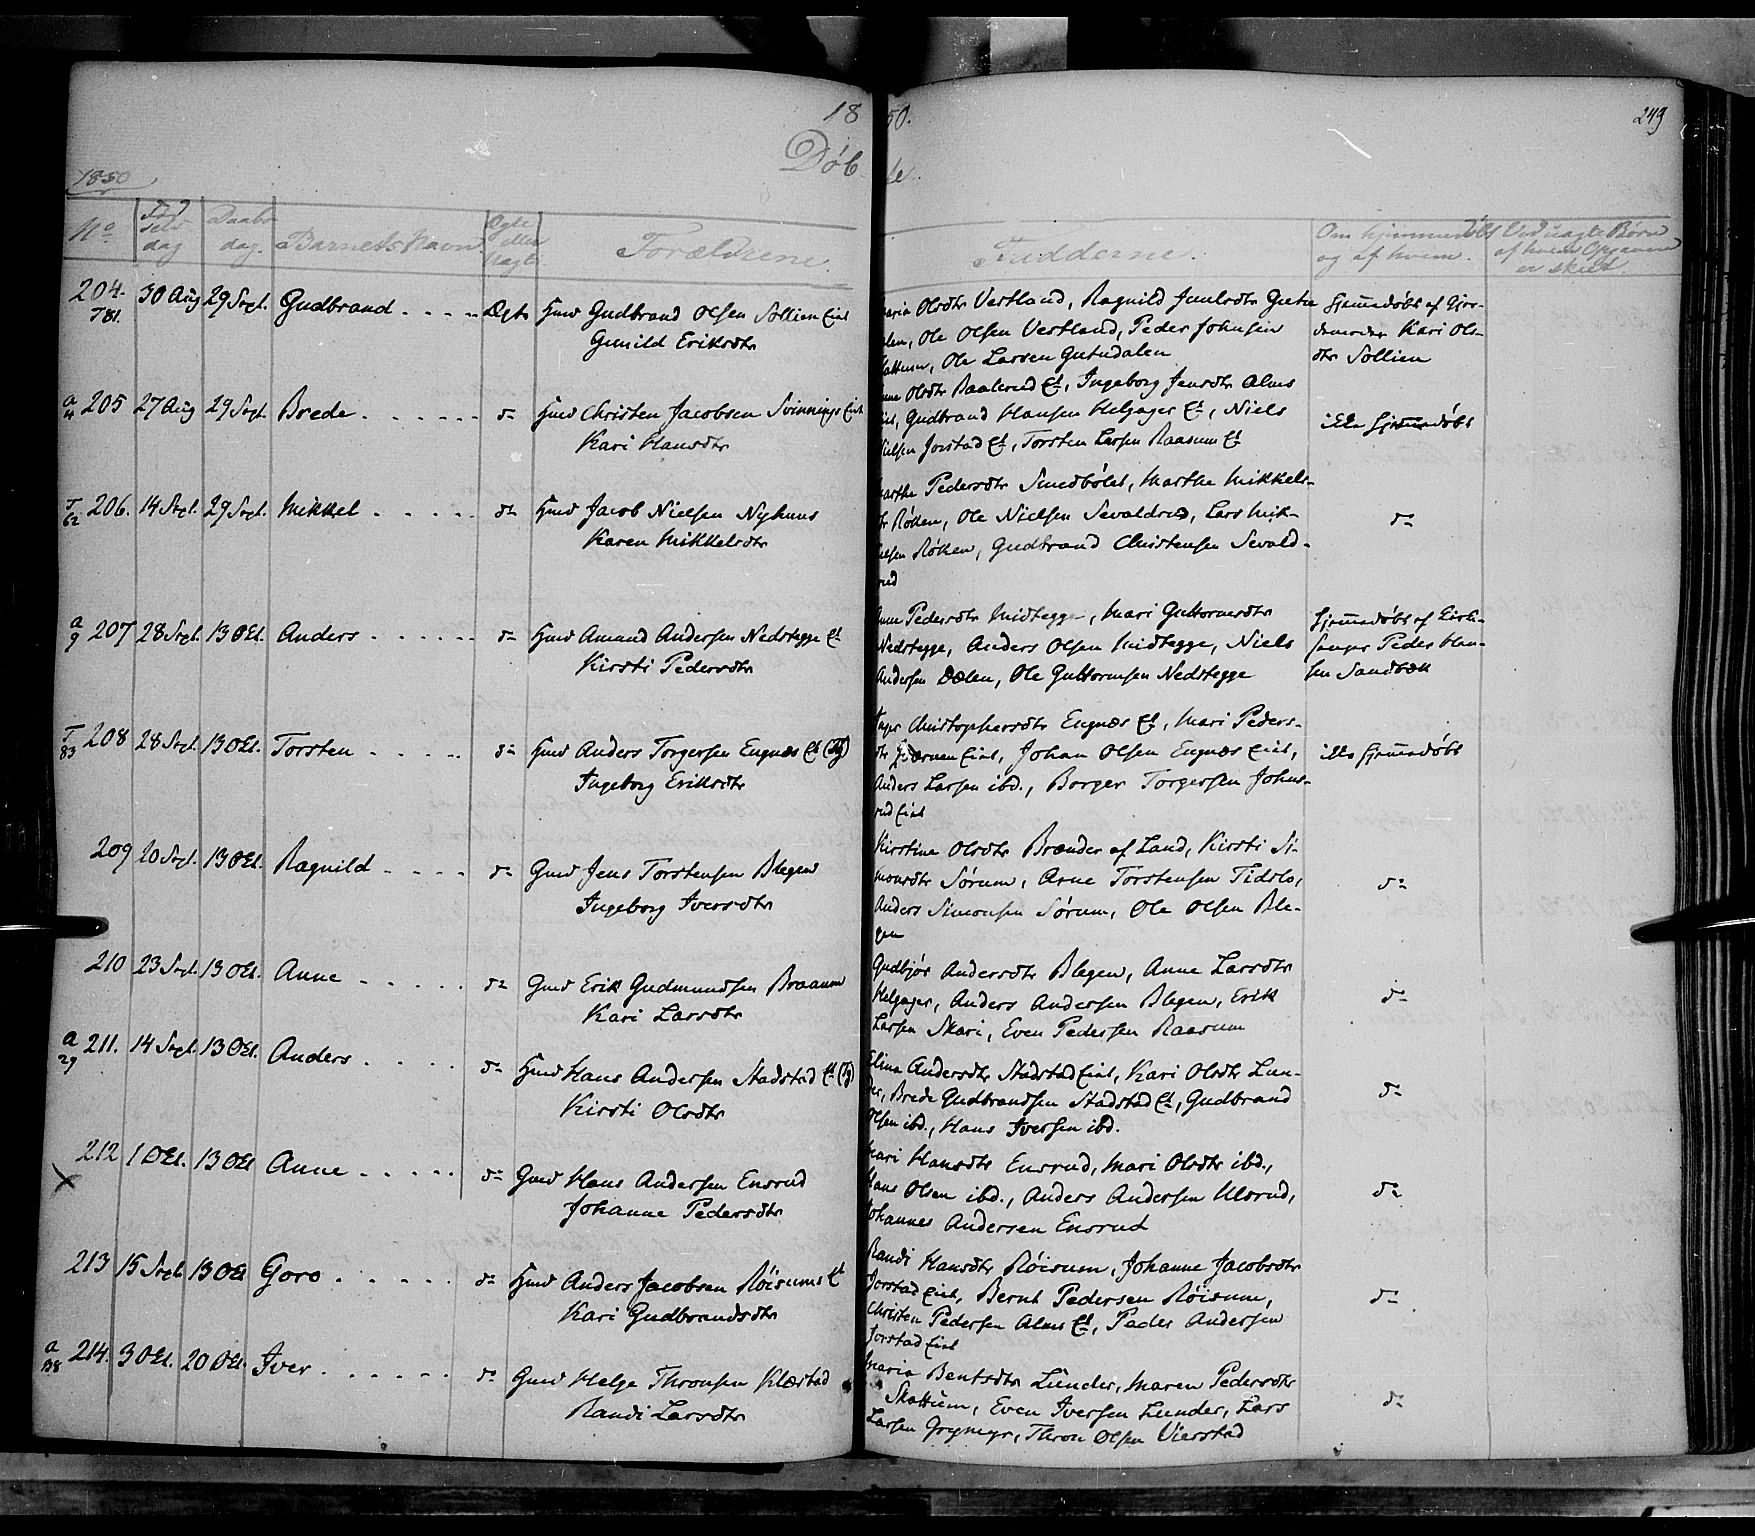 1850.
249
Døbte.
1850
No
Fødselsdag
Daabsdag.
Barnets Navn
Ægte eller Uægte
Forældrene.
Fadderne.
Om hjemmedøbt og af hvem.
Ved uægte Børn af hvem Opgaven er skeet.
204. T 81. 30 Aug 29 Sept. Gudbrand Ægte Hmd Gudbrand Olsen Sollien Eiet
Gunild Eriksdtr
Maria Olsdtr Vestland, Ragnild Juulsdtr Gutu
dalen, Ole Olsen Vestland, Peder Johnsen
Skattum, Ole Larsen Gutudalen
Hjemmedøbt af Gjor-
demoder Kari Ols-
dtr Sollien
a 4 205 27 Aug 29 Sept. Brede do Hmd Christen Jacobsen Svinnings Eiet
Kari Hansdtr
Anne Olsdtr Raalerud Et, Ingeborg Jensdtr Alms
Eiet, Gudbrand Hansen Helgager Et, Niels
Nielsen Jorstad Et, Torsten Larsen Raasum Et
ikke hjemmedøbt
T 62 206. 14 Sept. 29 Sept. Mikkel do Hmd Jacob Nielsen Nyhuus
Karen Mikkelsdtr
Marthe Pedersdtr Smedbølet, Marthe Mikkels-
dtr Røken, Ole Nielsen Sevaldrud, Lars Mik-
kelsen Røken, Gudbrand Christensen Sevald-
rud
do
a 9 207 28 Sept. 13 Okt. Anders do Hmd Amund Andersen Nedstegge Et
Kirsti Pedersdtr
Anne Pedersdtr Midtegge, Mari Guttormsdtr
Nedstegge, Anders Olsen Midtegge, Niels
Andersen Dælen, Ole Guttormsen Nedstegge
Hjemmedøbt af Kirke-
sanger Peder Han-
sen Sandbæk
T 83 208 28 Sept. 13 Okt. Torsten do Hmd Anders Torgersen Engnæs Et (Tg)
Ingeborg Eriksdtr
Inger Christophersdtr Engnæs Et, Mari Peders-
dtr Eiet, Johan Olsen Engnæs Eiet,
Anders Larsen ibd., Borger Torgersen Johns-
rud Eiet
ikke hjemmedøbt
209 20 Sept. 13 Okt. Ragnild do Gmd Jens Torstensen Blegen
Ingeborg Iversdtr
Kirstine Olsdtr Brænder af Land, Kirsti Si-
monsdtr Sørum, Arne Torstensen Tidslo,
Anders Simonsen Sørum, Ole Olsen Ble-
gen
do
210 23 Sept. 13 Okt. Anne do Gmd Erik Gudmundsen Braanum
Kari Larsdtr
Gudbjør Andersdtr Blegen, Anne Larsdtr
Helgager, Anders Andersen Blegen, Erik
Larsen Skari, Even Pedersen Raasum
do
a 29 211. 14 Sept. 13 Okt. Anders do Hmd Hans Andersen Stadstad Et (Tg)
Kirsti Olsdtr
Eline Andersdtr Stadstad Eiet, Kari Olsdtr Lun-
der, Brede Gudbrandsen Stadstad Et, Gudbrand
Olsen ibd., Hans Iversen ibd.
do
212 1 Okt. 13 Okt Anne do Gmd Hans Andersen Ensrud
Johanne Pedersdtr
Mari Hansdtr Ensrud, Mari Olsdtr ibd.,
Hans Olsen ibd., Anders Andersen Ulsrud,
Johannes Andersen Ensrud
do
213 15 Sept 13 Okt Goro do Hmd Anders Jacobsen Røisums Et
Kari Gudbrandsdtr
Randi Hansdtr Røisum, Johanne Jacobsdtr
Jorstad Eiet, Bernt Pedersen Røisum,
Christen Pedersen Alms Et, Peder Andersen
Jorstad Eiet
do
a 38 214. 3 Okt. 20 Okt. Iver do Gmd Helge Thronsen Klæstad
Randi Larsdtr
Maria Bentsdtr Lunder, Maren Pedersdtr
Skattum, Even Iversen Lunder, Lars
Larsen Grymyr, Thron Olsen Vierstad
do